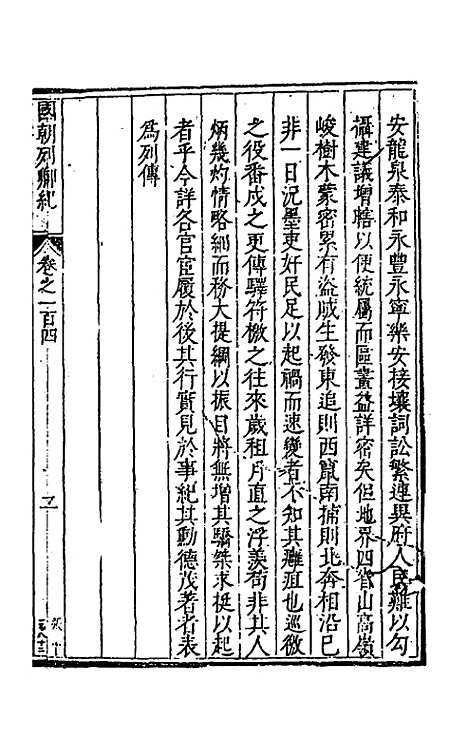 安龍泉泰和永豐永寧樂安接壤詞訟繁連異府人民難以勾
攝建議增轄以便統屬而區畫益詳密矣但地界四省山高嶺
峻樹木蒙密累有盜賊生發東追則西竄南捕則北奔相沿已
非一日況墨吏奸民足以起禍而速變者不知其癰疽也巡徼
之役番戍之更傳驛符檄之往來歲租月直之浮羨苟非其人
炳幾灼情略細而務大提綱以振目將無增其驕桀求挺以起
者乎今詳各官宦履於後其行實見於事紀其勳德茂著者表
為列傳
國朝列卿紀
卷之一百四